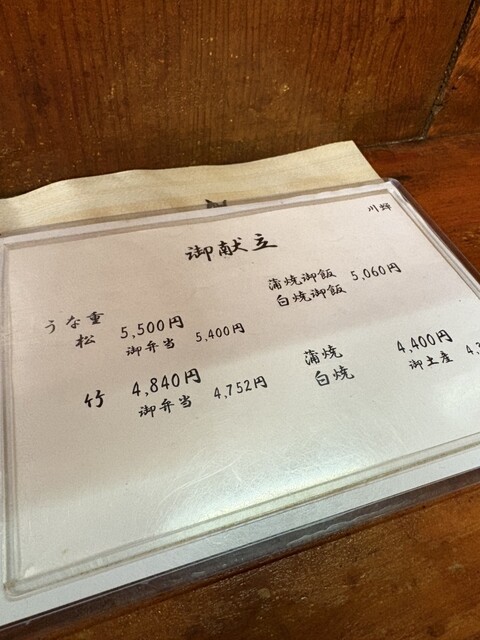 川輝
御献立
うな重
松 5,500円
御弁当 5,400円
竹 4,840円
御弁当 4,752円
蒲焼御飯 5,060円
白焼御飯
蒲焼 4,400円
白焼 御土産